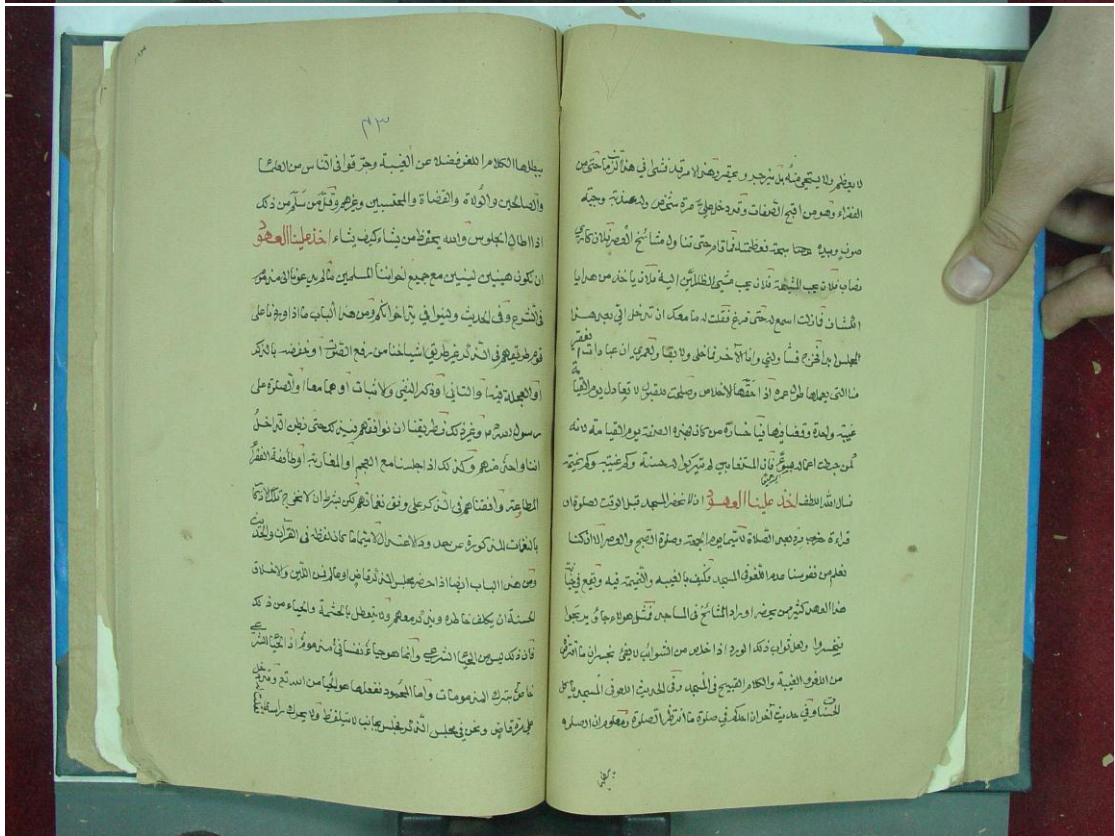 لا يعظم ولا يستحي منه بل يترجر ويعتقر وهذا الامر قد فشى في هذا الزمان حتى من
الفقراء وهو من اقبح الصفات وقد دخل علي مرة شخص وله عذبة وجبة
صوف وبيده سبحة فعظمته فاقام حتى تناول مشائخ العصر فلان كذا
نصاب فلان يحب المشيخة فلان يحب مشي الظالمين اليه فلان ياخذ من هدايا
الكشاف فما زلت اسمع له حتى فرغ فقلت له ما معك ان تدخل الي بعد هذا
المجلس ابدا فخرج
ما التي يعملها طول عمره اذا حفها الاخلاص وصلحت للقبول لا تعادل يوم القيامة
غيبة واحدة وقع فيها فيا خسارة من كان بهذه الصفة يوم القيامة لانه
كمن حبطت اعماله فان المغتابين لم يتركوا له حسنة وكم غيبة وكم نميمة
نسال الله اللطف اخذ علينا العهود ان لا نحضر المسجد قبل الوقت لصلوة او
قراءة حزب ورد بعد الصلاة لا سيما يوم الجمعة وصلوة الصبح والعصر الا ان كنا
نعلم من نفوسنا عدم اللغو في المسجد فكيف بالغيبة والنميمة فيه ويقع في خيانة
هذا العهد كثير من يحضر اوراد المشائخ في المساجد فمثل هولاء جاؤ يربحوا
فخسروا وهل ثواب ذلك الورد اذا خلص من الشوائب لا يفي بخسران ما اقترفوا
من اللغو والغيبة والكلام القبيح في المسجد وفي الحديث اللغو في المسجد ياكل
الحسنات وفي حديث اخر ان احدكم في صلوة ما انتظر الصلوة ومعلوم ان الصلوة
يبطلها
٤٣
يبطلها الكلام اللغو فضلا عن الغيبة وحرقوا في الناس من العلماء
والصالحين والولاة والقضاة والمحتسبين وغيرهم وقل من سلم من ذلك
اذا اطال الجلوس والله يحفظ من يشاء كيف يشاء اخذ علينا العهود
ان نكون هينين لينين مع جميع اخواننا المسلمين ما لم يدعونا الى منهى
في الشرع وفي الحديث ولينوا في يد اخوانكم ومن هذا الباب ما اذا وردنا على
قوم طريقهم في الذكر غير طريق اشياخنا من رفع الصوت او خفضه بالذكر
او العجلة فيه والتاني او ذكر النفي والاثبات او هما معا او الصلوة على
رسول الله ص م وغير ذلك فطريقنا ان نوافقهم في ذلك حتى يظن الداخل
اننا واحد منهم وكذلك اذا جلسنا مع العجم او المغاربة او طائفة الفقراء
المطاوعة وافقناهم في الذكر على وفق نغماتهم لكن بشرط ان لا يخرج تلك الاذكار
بالنغمات المذكورة عن حد كما في لفظه في القران والحديث
ومن هذا الباب ايضا اذا حضر مجلس الذكر قاض او عالم فمن اللين والاخلاق
الحسنة ان يكلف خاطره ويذكر معهم ولا يتعطل بالحشمة والحياء من ذلك
فان ذلك ليس من الحياء الشرعي وانما هو حياء نفساني مذموم اذ الحياء الشرعي
خاص بترك المذمومات واما المحمود ففعلها هو الحياء من الله تع وقد دخل
علي مرة قاض ونحن في مجلس الذكر فجلس بجانب لا يتلفظ ولا يحرك راسه